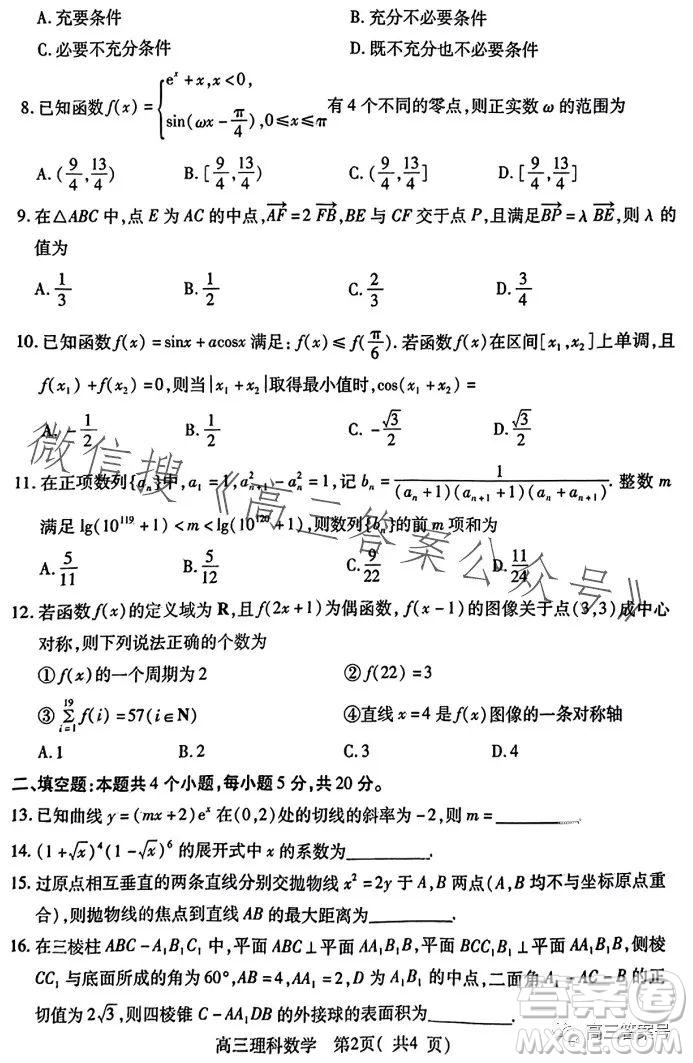 A.充要条件 B.充分不必要条件
C.必要不充分条件 D.既不充分也不必要条件
8.已知函数f(x)={e^x+x,x<0, sin(ωx-π/4),0≤x≤π 有4个不同的零点,则正实数ω的范围为
A.(9/4,13/4) B.[9/4,13/4) C.(9/4,13/4] D.[9/4,13/4]
9.在△ABC中,点E为AC的中点,AF→=2FB→,BE与CF交于点P,且满足BP→=λBE→,则λ的
值为
A.1/3 B.1/2 C.2/3 D.3/4
10.已知函数f(x)=sinx+acosx满足:f(x)≤f(π/6).若函数f(x)在区间[x₁,x₂]上单调,且
f(x₁)+f(x₂)=0,则当|x₁+x₂|取得最小值时,cos(x₁+x₂)=
A.-1/2 B.1/2 C.-√3/2 D.√3/2
11.在正项数列{aₙ}中,a₁=1,a²ₙ₊₁-a²ₙ=1,记bₙ=1/((aₙ+1)(aₙ₊₁+1)(aₙ+aₙ₊₁)).整数m
满足lg(10^119+1)<m<lg(10^120+1),则数列{bₙ}的前m项和为
A.5/11 B.5/12 C.9/22 D.11/24
12.若函数f(x)的定义域为R,且f(2x+1)为偶函数,f(x-1)的图像关于点(3,3)成中心
对称,则下列说法正确的个数为
①f(x)的一个周期为2 ②f(22)=3
③∑_{i=1}^{19}f(i)=57(i∈N) ④直线x=4是f(x)图像的一条对称轴
A.1 B.2 C.3 D.4
二、填空题:本题共4个小题,每小题5分,共20分。
13.已知曲线y=(mx+2)e^x在(0,2)处的切线的斜率为-2,则m=________
14.(1+√x)^4(1-√x)^6的展开式中x的系数为________.
15.过原点相互垂直的两条直线分别交抛物线x²=2y于A,B两点(A,B均不与坐标原点重
合),则抛物线的焦点到直线AB的最大距离为________.
16.在三棱柱ABC-A₁B₁C₁中,平面ABC⊥平面AA₁B₁B,平面BCC₁B₁⊥平面AA₁B₁B,侧棱
CC₁与底面所成的角为60°,AB=4,AA₁=2,D为A₁B₁的中点,二面角A₁-AC-B的正
切值为2√3,则四棱锥C-AA₁DB的外接球的表面积为________.
高三理科数学 第2页( 共4 页)
微信搜《高三答案公众号》
答案圈
MXQE.COM
高三答案号